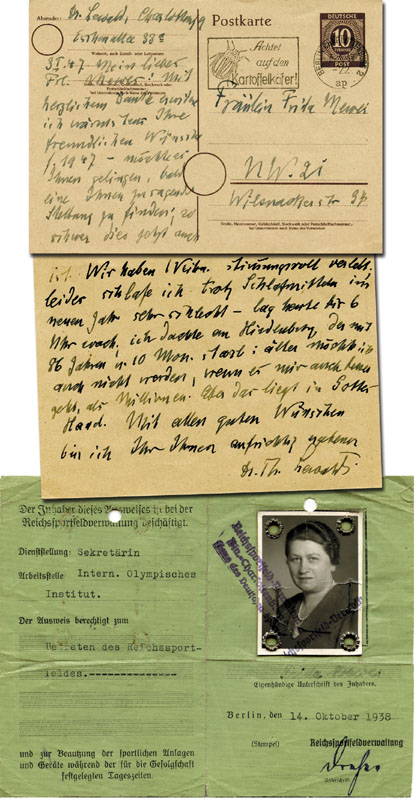 Absender: Dr. Lewald, Charlottenbg
Postkarte
DEUTSCHE
10
PFENNIG
POST
Wohnort, auch Zustell- oder Leitpostamt
Achtet
auf den
Kartoffelkäfer!
3.I.47. Mein lieber
Frl. Mit
herzlichem Danke
ich Ihre
freundlichen Wünsche
f. 1947 —
Ihnen gelingen, bald
eine Ihnen zusagende
Stellung zu finden, so
schwer dies jetzt auch
Fräulein
NW. 21
Wilsnackerstr.
Straße, Hausnummer, Gebäudeteil, Stockwerk oder Postschließfachnummer;
bei Untermietern auch Name des Vermieters
ist. Wir haben stimmungsvoll verlebt,
leider schlafe ich trotz Schlafmitteln im
neuen Jahr sehr schlecht — lag heute bis 6
Uhr wach, ich dachte an Hindenburg, der mit
86 Jahren u. 10 Mon. starb; älter möchte ich
auch nicht werden, wenn es mir auch besser
geht, als Millionen. Aber das liegt in Gottes
Hand. Mit allen guten Wünschen
bin ich Ihr Ihnen aufrichtig ergebener
Dr. Th. Lewald
Der Inhaber dieses Ausweises ist bei der
Reichssportfeldverwaltung beschäftigt.
Dienststellung: Sekretärin
Arbeitsstelle: Intern. Olympisches
Institut.
Der Ausweis berechtigt zum
Betreten des Reichssport-
feldes.
und zur Benutzung der sportlichen Anlagen
und Geräte während der für die Gefolgschaft
festgelegten Tageszeiten.
Eigenhändige Unterschrift des Inhabers.
Berlin, den 14. Oktober 1938
(Stempel) Reichssportfeldverwaltung
Unterschrift